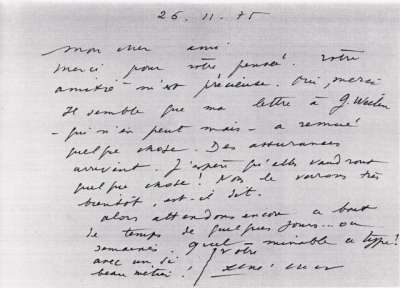 26. 11. 75
mon cher ami
merci pour votre pensée. Votre
amitié m'est précieuse. Oui, merci
Il semble que ma lettre à G.
- qui n'en peut mais - a remué
quelque chose. Des assurances
arrivent. J'espère qu'elles vaudront
quelque chose ! Nous le verrons très
bientôt, est-il dit.
alors attendons encore a bout
de temps de quelques jours... ou
semaines. quel minable ce type !
avec un si
beau métier ! Votre
René Char